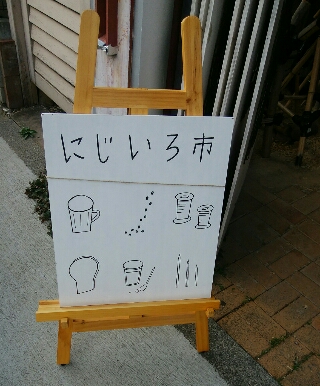 にじいろ市